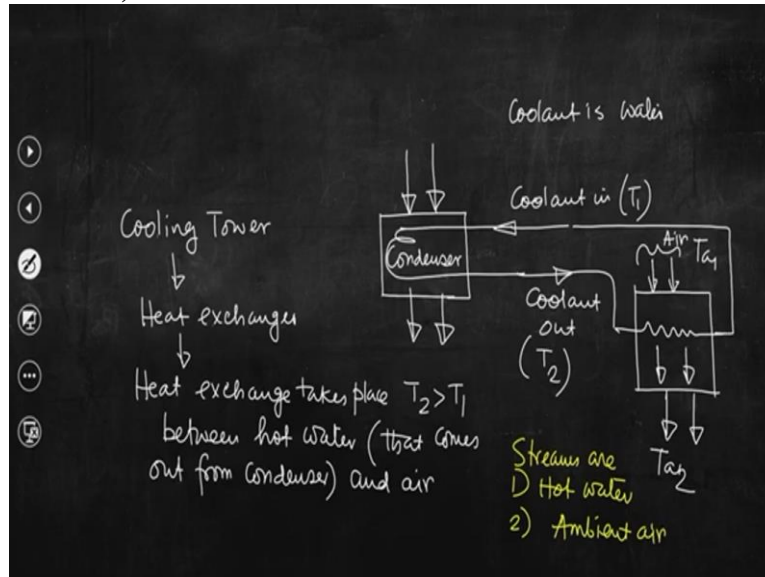 Coolant is water
Coolant in (T1)
Cooling Tower
Air Ta1
Condenser
Heat exchanger
Coolant
out
(T2)
Heat exchange takes place T2>T1
between hot water (that comes
out from condenser) and air
Ta2
Streams are
1) Hot water
2) Ambient air